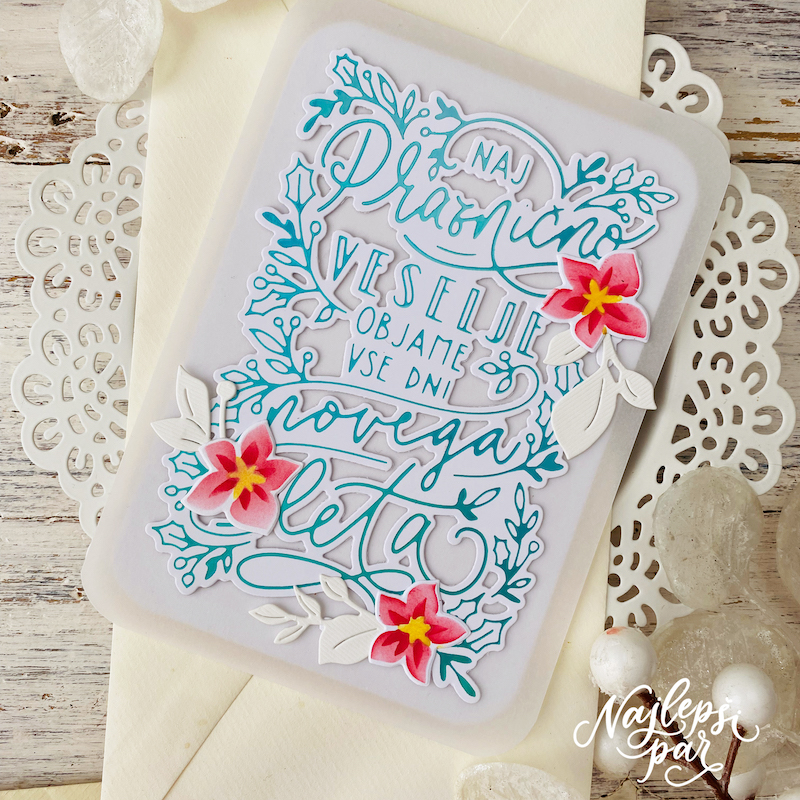 NAJ
Praznično
VESELJE
OBJAME
VSE DNI
novega
leta
Najlepši
par